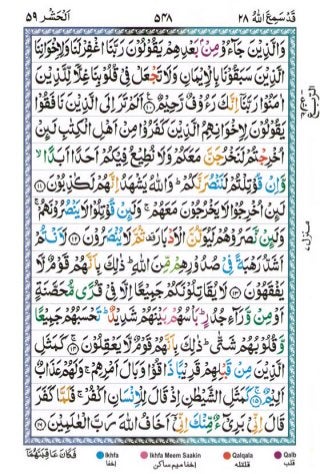 اَلْحَشْر ۵۹ ۵۴۸ قَدْ سَمِعَ اللّٰهُ ۲۸
وَالَّذِيْنَ جَآءُوْ مِنْۢ بَعْدِهِمْ يَقُوْلُوْنَ رَبَّنَا اغْفِرْ لَنَا وَلِاِخْوَانِنَا
الَّذِيْنَ سَبَقُوْنَا بِالْاِيْمَانِ وَلَا تَجْعَلْ فِيْ قُلُوْبِنَا غِلًّا لِّلَّذِيْنَ
اٰمَنُوْا رَبَّنَآ اِنَّكَ رَءُوْفٌ رَّحِيْمٌ ۟(۱۰) اَلَمْ تَرَ اِلَى الَّذِيْنَ نَافَقُوْا
يَقُوْلُوْنَ لِاِخْوَانِهِمُ الَّذِيْنَ كَفَرُوْا مِنْ اَهْلِ الْكِتٰبِ لَىِٕنْ
اُخْرِجْتُمْ لَنَخْرُجَنَّ مَعَكُمْ وَلَا نُطِيْعُ فِيْكُمْ اَحَدًا اَبَدًا ۙ
وَّاِنْ قُوْتِلْتُمْ لَنَنْصُرَنَّكُمْ ؕ وَاللّٰهُ يَشْهَدُ اِنَّهُمْ لَكٰذِبُوْنَ (۱۱)
لَىِٕنْ اُخْرِجُوْا لَا يَخْرُجُوْنَ مَعَهُمْ ۚ وَلَىِٕنْ قُوْتِلُوْا لَا يَنْصُرُوْنَهُمْ ۚ
وَلَىِٕنْ نَّصَرُوْهُمْ لَيُوَلُّنَّ الْاَدْبَارَ ۫ ثُمَّ لَا يُنْصَرُوْنَ (۱۲) لَاَنْتُمْ
اَشَدُّ رَهْبَةً فِيْ صُدُوْرِهِمْ مِّنَ اللّٰهِ ؕ ذٰلِكَ بِاَنَّهُمْ قَوْمٌ لَّا
يَفْقَهُوْنَ (۱۳) لَا يُقَاتِلُوْنَكُمْ جَمِيْعًا اِلَّا فِيْ قُرًى مُّحَصَّنَةٍ
اَوْ مِنْ وَّرَآءِ جُدُرٍ ؕ بَاْسُهُمْ بَيْنَهُمْ شَدِيْدٌ ؕ تَحْسَبُهُمْ جَمِيْعًا
وَّقُلُوْبُهُمْ شَتّٰى ؕ ذٰلِكَ بِاَنَّهُمْ قَوْمٌ لَّا يَعْقِلُوْنَ (۱۴) كَمَثَلِ
الَّذِيْنَ مِنْ قَبْلِهِمْ قَرِيْبًا ذَاقُوْا وَبَالَ اَمْرِهِمْ ۚ وَلَهُمْ عَذَابٌ
اَلِيْمٌ (۱۵) كَمَثَلِ الشَّيْطٰنِ اِذْ قَالَ لِلْاِنْسَانِ اكْفُرْ ۚ فَلَمَّا كَفَرَ
قَالَ اِنِّيْ بَرِيْٓءٌ مِّنْكَ اِنِّيْٓ اَخَافُ اللّٰهَ رَبَّ الْعٰلَمِيْنَ (۱۶)
فَكَانَ عَاقِبَتَهُمَآ Ikhfa Ikhfa Meem Saakin Qalqala Qalb
اخفا اخفا میم ساکن قلقلہ قلب